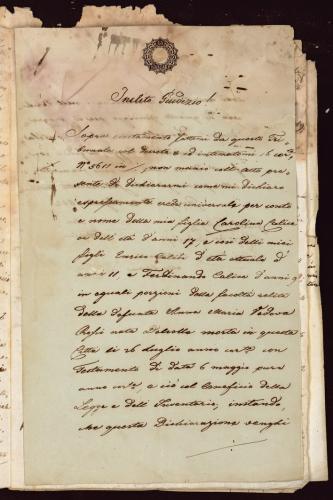 Inclito Giudizio!
Sopra eccitamento fattomi da questo Tri
bunale col decreto ed intimatomi 16 corr.
N° 5611 in / non manco coll'atto pre
sente di dichiararmi come mi dichiaro
espressamente erede universale per conto
e nome della mia figlia Carolina Calice
or dell'età d'anni 17, e così delli miei
figli Enrico Calice d'età attuale d'
anni 11 e Ferdinando Calice d'anni 9
in eguali porzioni della facoltà relitta
della defunta Anna Maria Vedova
Rossi nata morta in questa
Città li 26 luglio anno corr. con
Testamento di data 6 maggio pure
anno corr. e ciò col beneficio della
Legge e dell'Inventario, instando,
che questa Dichiarazione venghi